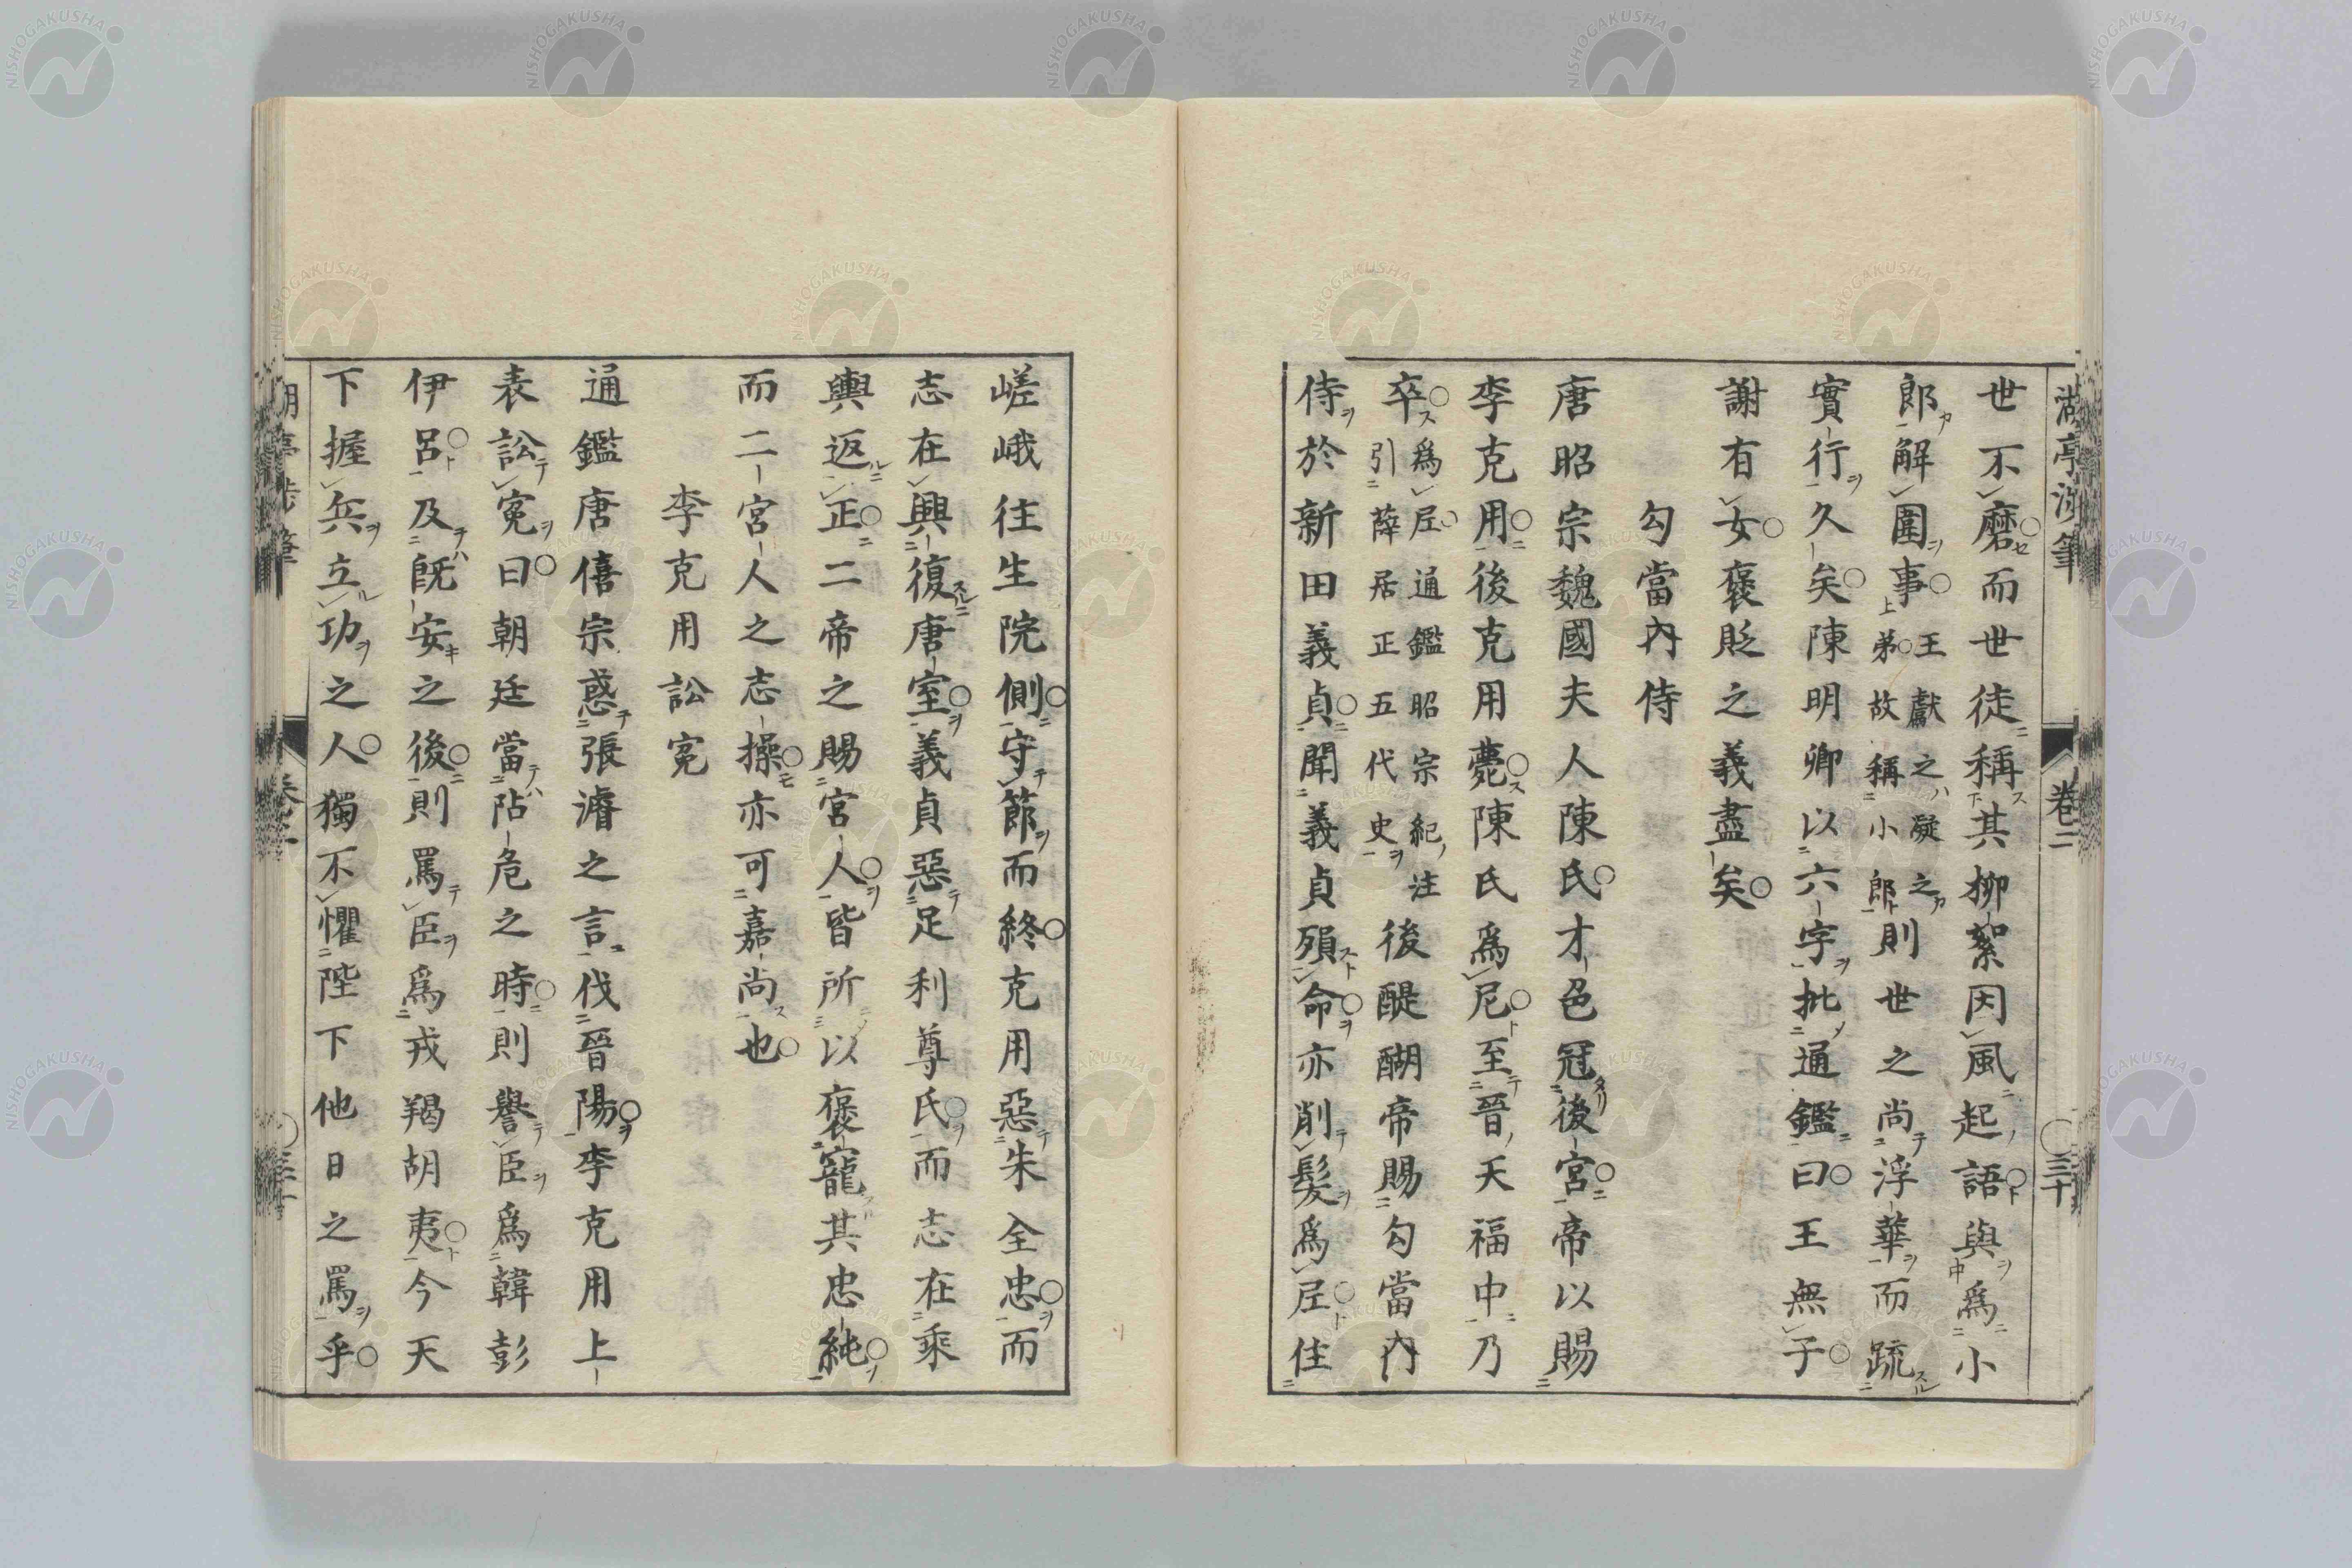 湖亭渉筆 卷二 三十
世不磨而世徒稱其柳絮因風起語與爲小
郎解圍事王獻之ハ凝之カ弟故稱小郎ト則世之尚浮華而疏
實行久矣陳明卿以六字批通鑑曰王無子
謝有女褒貶之義盡矣
勾當內侍
唐昭宗魏國夫人陳氏才色冠後宮帝以賜
李克用後克用薨陳氏爲尼至晉天福中乃
卒爲尼通鑑昭宗紀ノ注引薛居正五代史後醍醐帝賜勾當內
侍於新田義貞聞義貞殞命亦削髮爲尼住
嵯峨往生院側守節而終克用惡朱全忠而
志在興復唐室義貞惡足利尊氏而志在乘
輿返正二帝之賜宮人皆所以褒寵其忠純
而二宮人之志操亦可嘉尚也
李克用訟寃
通鑑唐僖宗惑張濬之言伐晉陽李克用上
表訟寃曰朝廷當阽危之時則譽臣爲韓彭
伊呂及既安之後則罵臣爲戎羯胡夷今天
下握兵立功之人獨不懼陛下他日之罵乎